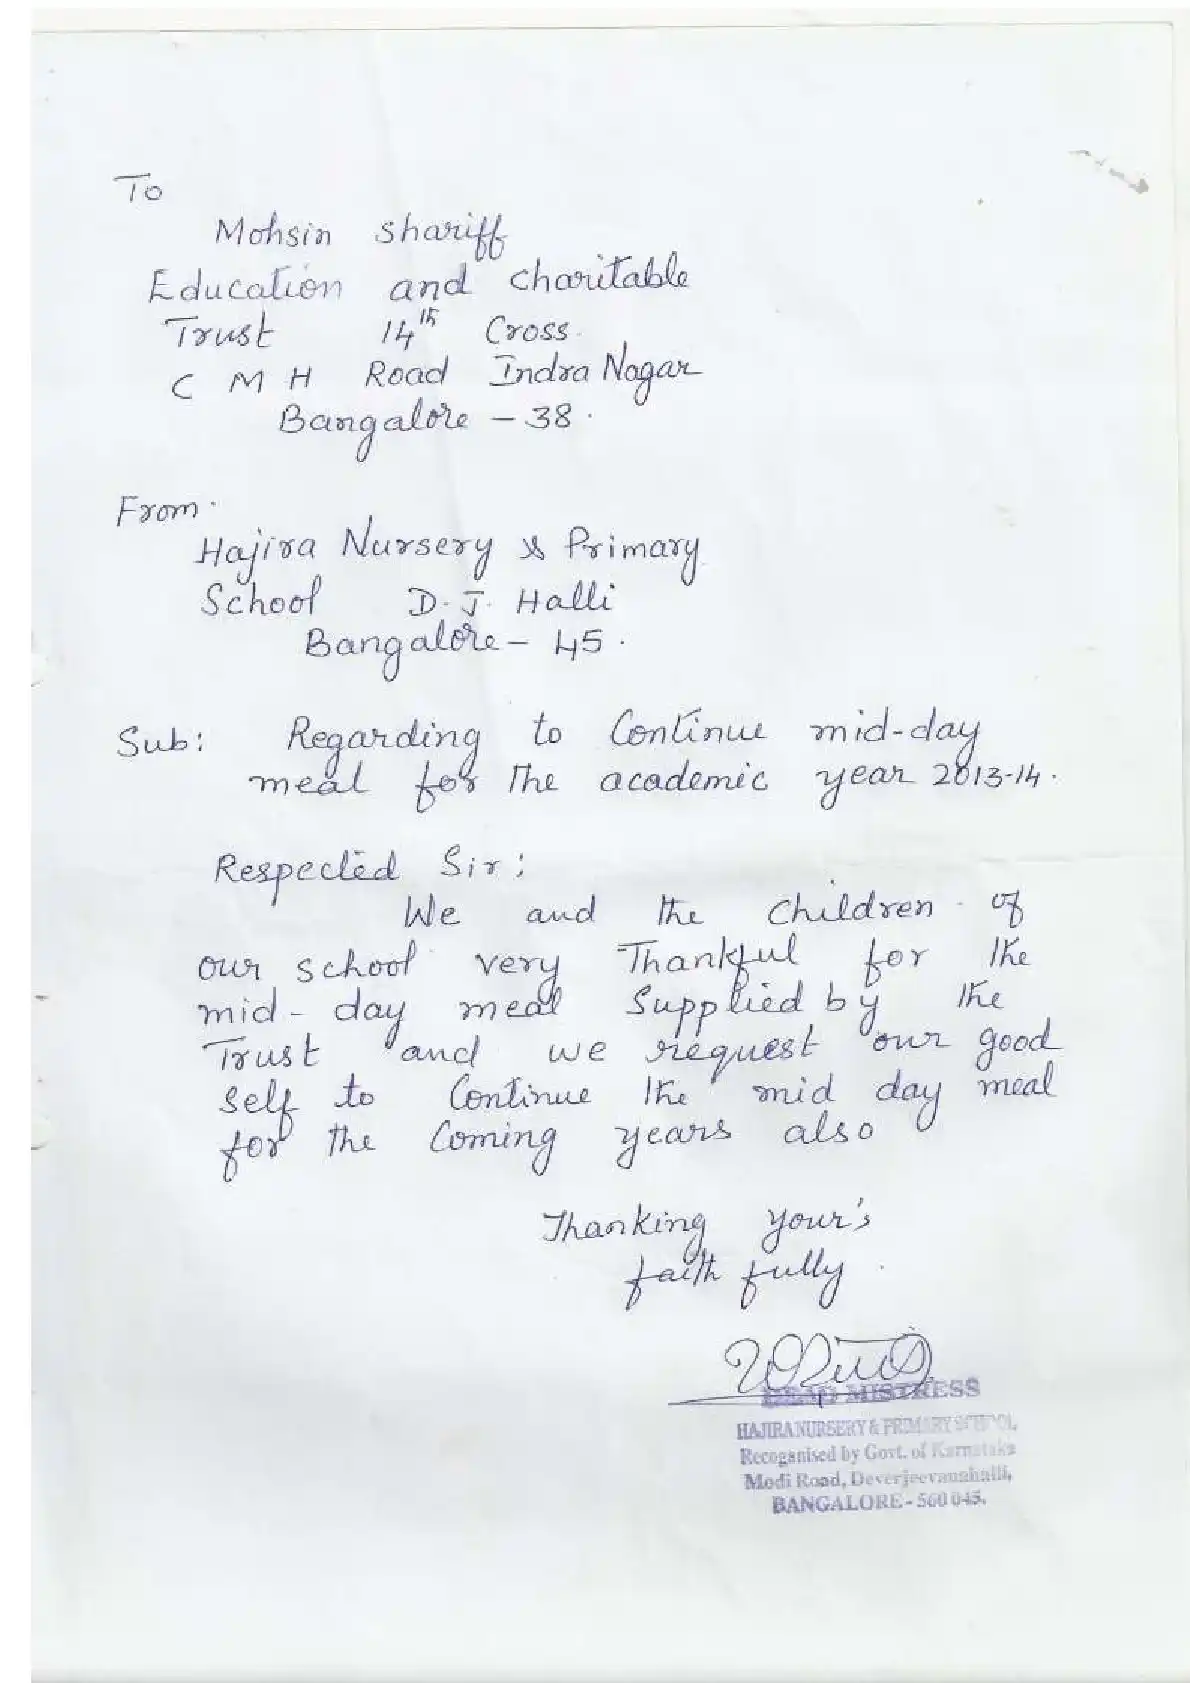 To
Mohsin Shariff
Education and Charitable
Trust 14th Cross.
C M H Road Indra Nagar
Bangalore - 38.
From.
Hajira Nursery & Primary
School D. J. Halli
Bangalore - 45.
Sub: Regarding to Continue mid-day
meal for the academic year 2013-14.
Respected Sir:
We and the Children of
our school very Thankful for the
mid-day meal Supplied by the
Trust and we request our good
self to Continue the mid day meal
for the Coming years also
Thanking your's
faithfully.
HEAD MISTRESS
HAJIRA NURSERY & PRIMARY SCHOOL,
Recoganised by Govt. of Karnataka
Modi Road, Deverjeevanahalli,
BANGALORE - 560 045.